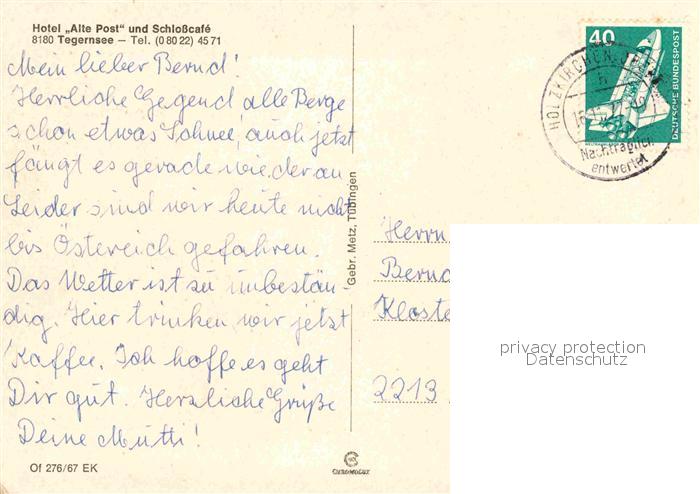 Hotel „Alte Post" und Schloßcafé
8180 Tegernsee – Tel. (0 80 22) 45 71
Mein lieber Bernd!
Herrliche Gegend alle Berge
schon etwas Schnee, auch jetzt
fängt es gerade wieder an
Leider sind wir heute nicht
bis Östereich gefahren.
Das Wetter ist zu unbestän-
dig. Hier trinken wir jetzt
Kaffee. Ich hoffe es geht
Dir gut. Herzliche Grüße
Deine Mutti!
Of 276/67 EK
Gebr. Metz, Tübingen
CHROMOLUX
40
DEUTSCHE BUNDESPOST
HOLZKIRCHEN
Nachträglich
entwertet
Herrn
Bernd
Kloste
2213
privacy protection
Datenschutz